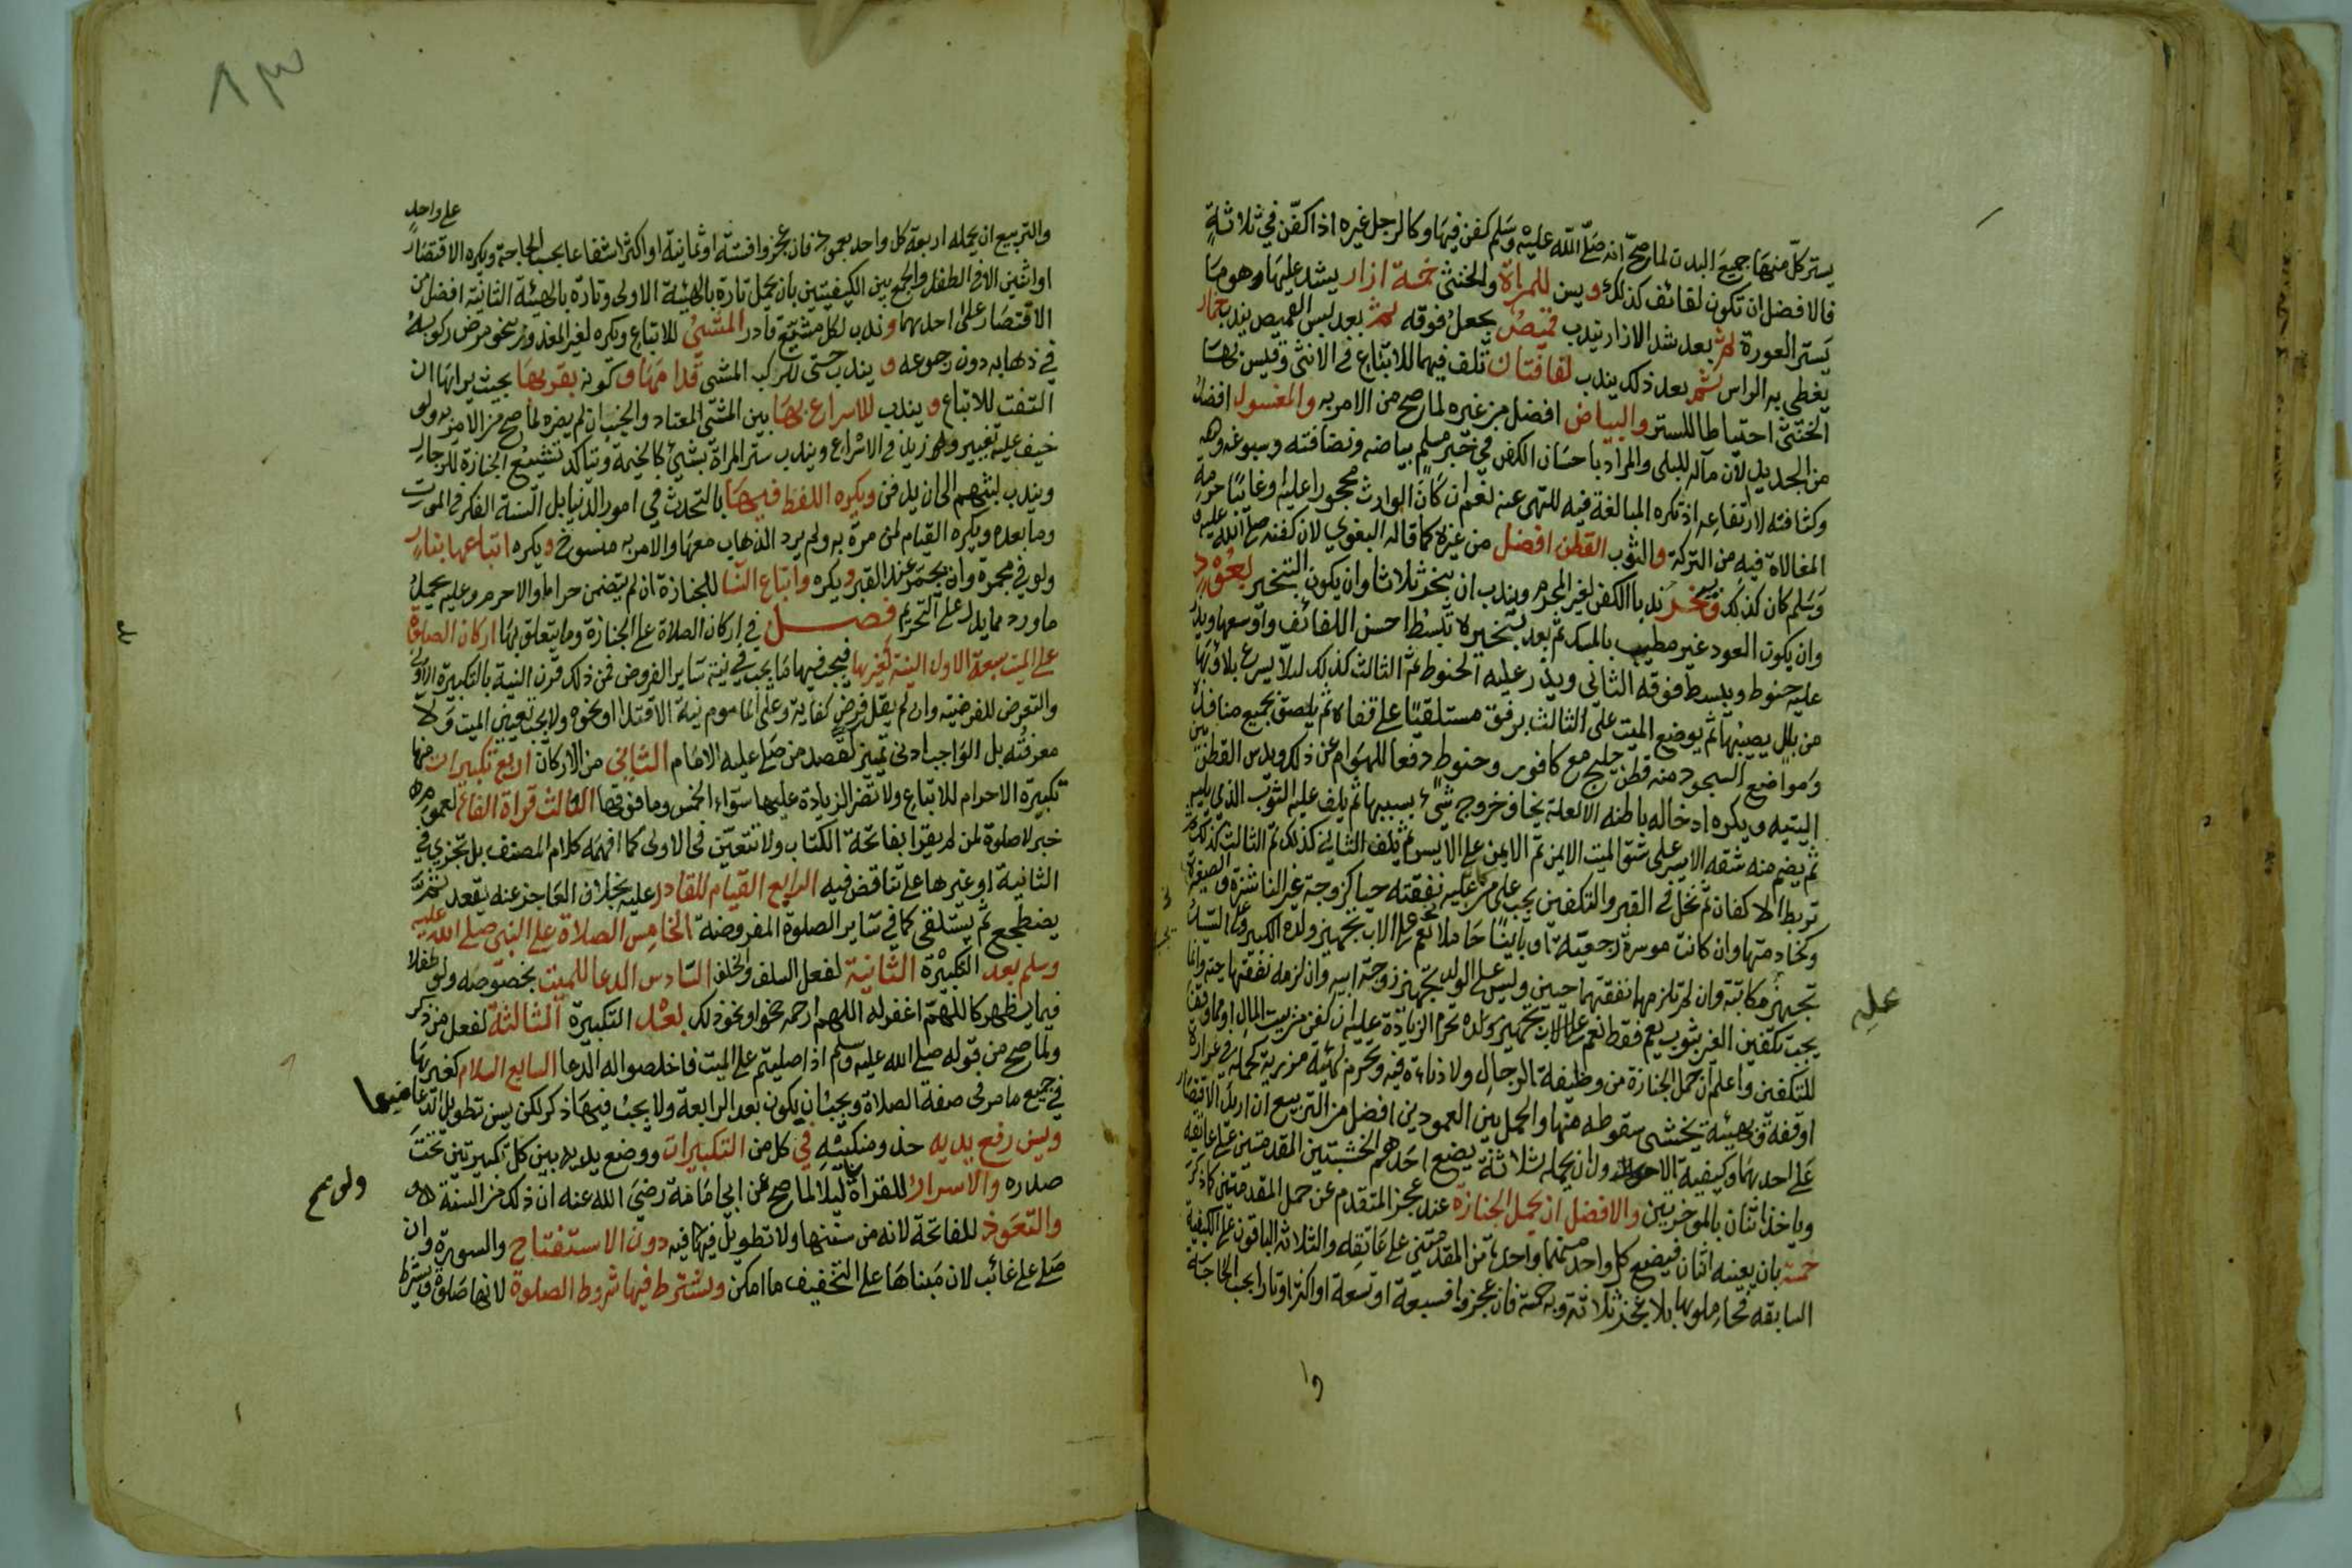 يستر كل منها جميع البدن لما صح انه صلى الله عليه وسلم كفن فيها وكالرجل غيره اذا كفن في ثلاثة
فالافضل ان تكون لفائف كذلك ويسن للمراة والخنثى خمسة ازار يشد عليها وهو ما
يستر العورة ثم بعد شد الازار يندب قميص يجعل فوقه ثم بعد لبس القميص يندب خمار
يغطي به الراس ثم بعد ذلك يندب لفافتان تلف فيهما للاتباع في الانثى وقيس بها
الخنثى احتياطا للستر والبياض افضل من غيره لما صح من الامر به والمغسول افضل
من الجديد لان مآله للبلى والمراد باحسان الكفن في خبر مسلم بياضه ونضافته وسبوغه
وكثافته لا ارتفاعه اذ تكره المبالغة فيه للنهى عنه نعم ان كان الوارث محجورا عليه او غائبا حرمة
المغالاة فيه من التركة والثوب القطن افضل من غيره كما قاله البغوي لان كفنه صلى الله عليه
وسلم كان كذلك وتبخير ندبا الكفن لغير المحرم ويندب ان يبخر ثلاثا وان يكون التبخير بعود
وان يكون العود غير مطيب بالمسك ثم بعد تبخيره تبسط احسن اللفائف واوسعها ويذر
عليه حنوط ويبسط فوقه الثاني ويذر عليه الحنوط ثم الثالث كذلك لئلا يسرع بلاؤها
من بلل يصيبها ثم يوضع الميت على الثالث برفق مستلقيا على قفاه ثم يلصق بجميع منافذه
ومواضع السجود منه قطن حليج مع كافور وحنوط دفعا للهوام عن ذلك ويدس القطن بين
اليتيه ويكره ادخاله باطنه الا لعلة يخاف خروج شيء بسببها ثم يلف عليه الثوب الذي يليه
ثم يضم منه شقه الايسر على شق الميت الايمن ثم الايمن على الايسر ثم يلف الثاني كذلك ثم الثالث كذلك
تربط الاكفان ثم تحل في القبر والتكفين يجب على من عليه نفقته حيا كزوجة غير الناشزة والصغيرة
وكخادمتها وان كانت موسرة رجعيته او باينا حاملا نعم على الاب تجهيز ولده الكبير وعلى السيد
تجهيز مكاتبه وان لم تلزمهما نفقتهما حيين وليس على الولد تجهيز زوجة ابيه وان لزمه نفقتها حية وانما
يجب تكفين الغير بثوب يعم فقط نعم على الاب تجهيز ولده تحرم الزيادة عليه ان كفن من بيت المال او مما وقف
للتكفين واعلم ان حمل الجنازة من وظيفة الرجال ولا دناءة فيه ويحرم بهيئة مزرية كحمله في غرارة
اوقفة وبهيئة يخشى سقوطه منها والحمل بين العمودين افضل من التربيع ان اريد الاقتصار
على احدهما وكيفية الاول ان يحمله ثلاثة يضع احدهم الخشبتين المقدمتين على عاتقه
وياخذ اثنان بالموخرتين والافضل ان يحمل الجنازة عند عجز المتقدم عن حمل المقدمتين كما ذكر
خمسة بان يعينه اثنان فيضع كل واحد منهما واحدة من المقدمتين على عاتقه والثلاثة الباقون على الكيفية
السابقه فحاملوها بلا عجز ثلاثة وبه خمسة فان عجزوا فسبعة او تسعة او اكثر اوتارا بحسب الحاجة
عليه
وا
٨٣
والتربيع ان يحمله اربعة كل واحد بعمود فان عجزوا فستة او ثمانية او اكثر اشفاعا بحسب الحاجة ويكره الاقتصار على واحد
او اثنين الا في الطفل والجمع بين الكيفيتين بان يحمل تارة بالهيئة الاولى وتارة بالهيئة الثانية افضل من
الاقتصار على احدهما وندب لكل مشيع قادر المشي للاتباع وكره لغير المعذور بنحو مرض ركوبه
في ذهابه دون رجوعه ويندب حتى للراكب المشي قدامها وكونه بقربها بحيث يراها ان
التفت للاتباع ويندب الاسراع بها بين المشي المعتاد والخبب ان لم يضره لما صح من الامر به ولو
خيف عليه تغيير ولا زيد في الاسراع ويندب ستر المراة بشيء كالخيمة ويتاكد تشييع الجنازة للرجال
ويندب لبثهم الى ان يدفن ويكره اللغط فيها بالتحدث في امور الدنيا بل السنة الفكر في الموت
وما بعده ويكره القيام لمن مرة به ولم يرد الذهاب معها والامر به منسوخ ويكره اتباعها بنار
ولو في مجمرة وان يجمر عند القبر ويكره واتباع النسا للجنازة ان لم يتضمن حراما والا حرم وعليه يحمل
ما ورد مما يدل على التحريم فصل في اركان الصلاة على الجنازة وما يتعلق بها اركان الصلوة
على الميت سبعة الاول النية كغيرها فيجب فيها ما يجب في نية ساير الفروض فمن ذلك قرن النية بالتكبيرة الاولى
والتعرض للفرضية وان لم يقل فرض كفاية وعلى الماموم نية الاقتدا او نحوه ولا يجب تعيين الميت ولا
معرفته بل الواجب ادنى تميز كقصد من صلى عليه الامام الثاني من الاركان اربع تكبيرات منها
تكبيرة الاحرام للاتباع ولا تضر الزيادة عليها سواء الخمس وما فوقها الثالث قراة الفاتحة لعموم
خبر لا صلوة لمن لم يقرا بفاتحة الكتاب ولا تتعين في الاولى كما افهمه كلام المصنف بل تجزي في
الثانية او غيرها على تناقض فيه الرابع القيام للقادر عليه بخلاف العاجز عنه يقعد ثم
يضطجع ثم يستلقى كما في ساير الصلوة المفروضة الخامس الصلاة على النبي صلى الله عليه
وسلم بعد التكبيرة الثانية لفعل السلف والخلف السادس الدعا للميت بخصوصه ولو طفلا
فيما يظهر كاللهم اغفر له اللهم ارحمه نحوا ونحو ذلك بعد التكبيرة الثالثة لفعل من ذكر
ولما صح من قوله صلى الله عليه وسلم اذا صليتم على الميت فاخلصوا له الدعا السابع السلام كغيرها
في جميع ما مر في صفة الصلاة ويجب ان يكون بعد الرابعة ولا يجب فيها ذكر لكن يسن تطويل الدعا فيها
ويسن رفع يديه حذو منكبيه في كل من التكبيرات ووضع يديه بين كل تكبيرتين تحت
صدره والاسرار للقراة ليلا لما صح عن ابي امامة رضي الله عنه ان ذلك من السنة
والتعوذ للفاتحة لانه من سننها ولا تطويل فيها فيه دون الاستفتاح والسورة وان
صلى على غائب لان مبناها على التخفيف ما امكن ويشترط فيها شروط الصلوة لانها صلوة ويشترط